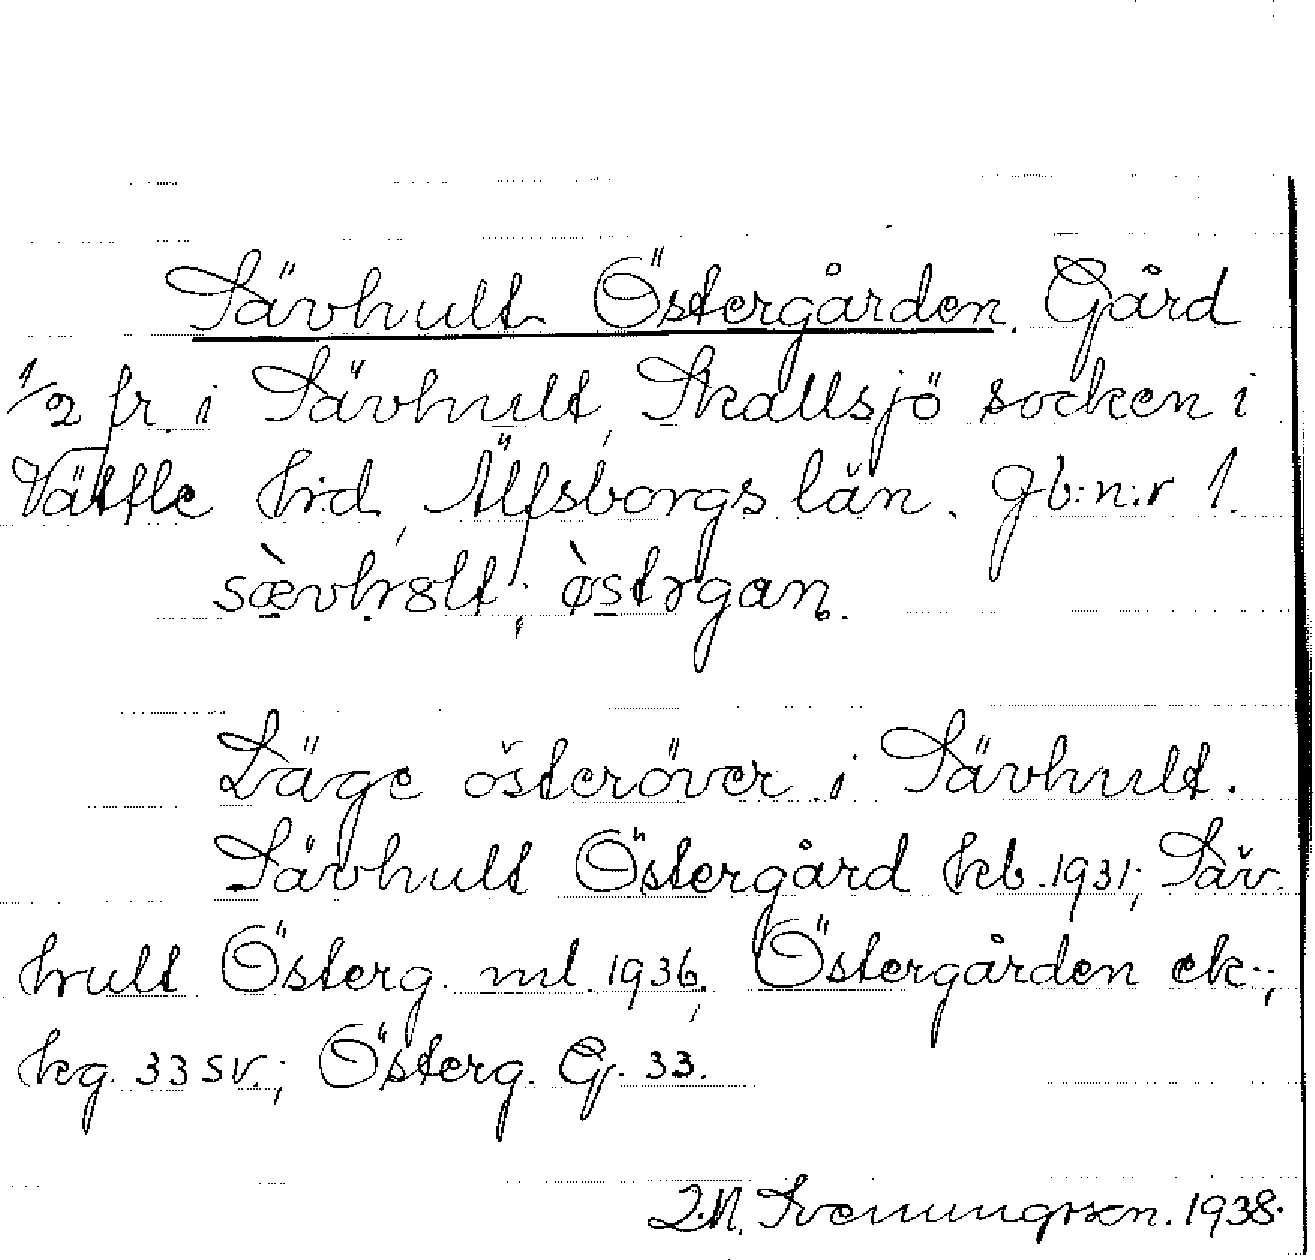 Sävhult Östergården. Gård
1/2 fr. i Sävhult, Skallsjö socken i
Vättle hrd, Älfsborgs län. Gb:n:r 1.
sæ̀vhɷlt; ø̀stɹgan.
Läge österöver i Sävhult.
Sävhult Östergård hkb. 1931; Säv-
hult Österg. ml. 1936; Östergården ek.;
kg. 33 SV.; Österg. G. 33.
Sveningsson. 1938.